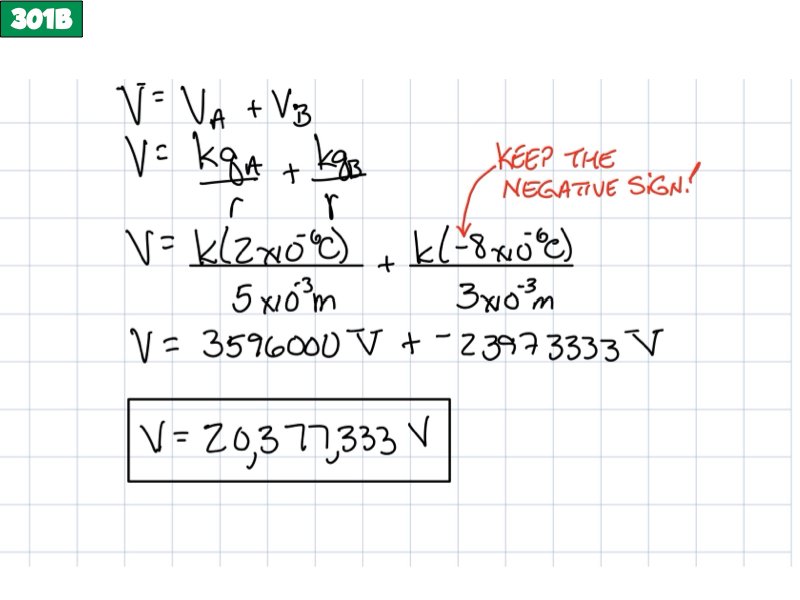 301B
V = VA + VB
V = kqA/r + kqB/r
KEEP THE
NEGATIVE SIGN!
V = k(2x10^-6C)/5x10^-3m + k(-8x10^-6C)/3x10^-3m
V = 3596000 V + -23973333 V
V = 20,377,333 V